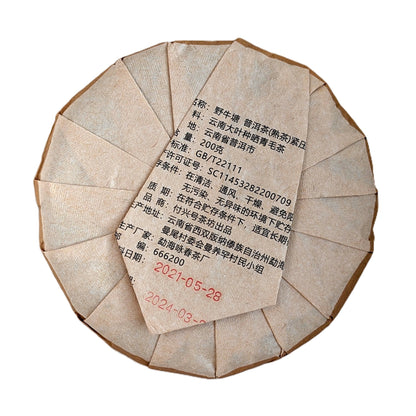 名称：野牛塘 普洱茶(熟茶)紧压
料：云南大叶种晒青毛茶
地：云南省普洱市
量：200克
标准：GB/T22111
许可证号：SC11453282200709
存条件：在清洁、通风、干燥、避免
无污染、无异味的环境下贮存
质 期：在符合贮存条件下，适宜长期
付兴号茶坊出品
生产地址：云南省西双版纳傣族自治州勐海
曼尾村委会曼养罕村民小组
生产厂家：勐海咏春茶厂
编：666200
日期：
2021-05-28
2024-03-2